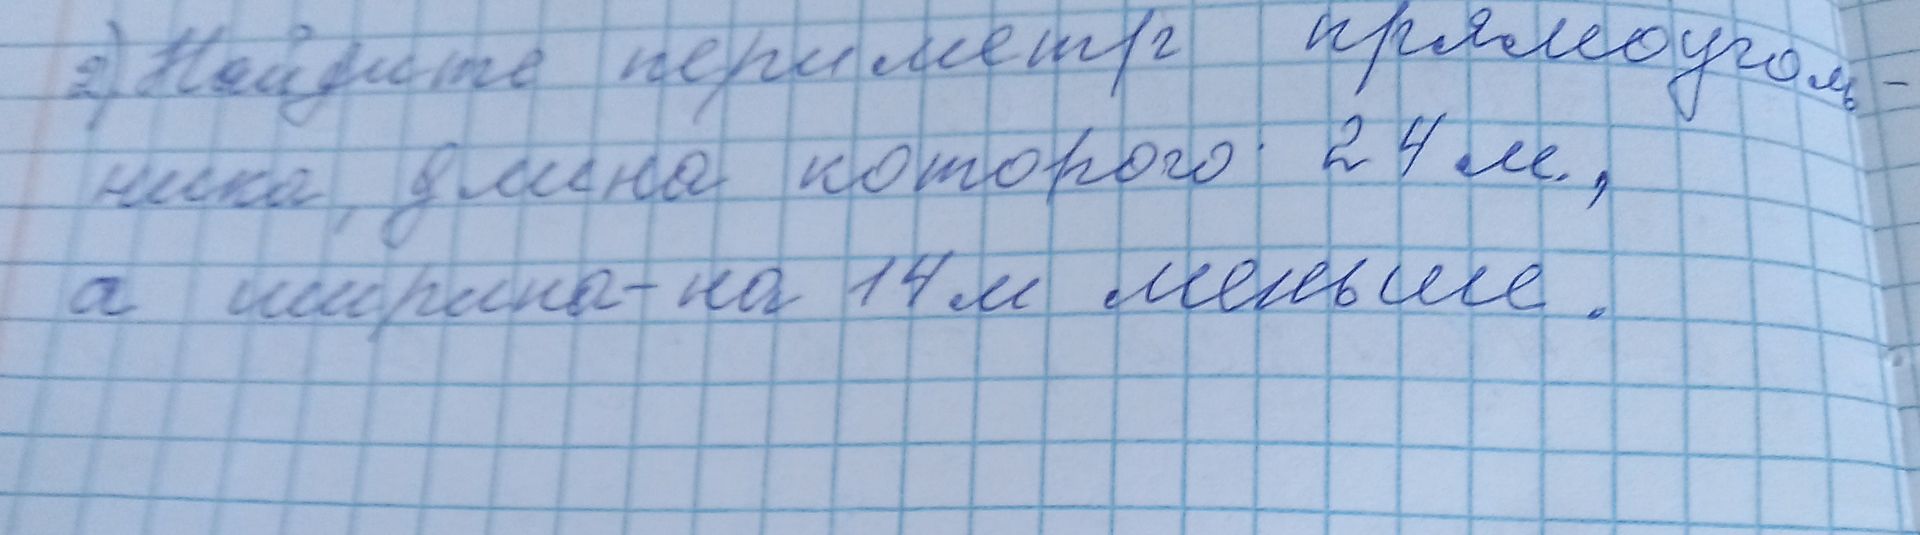 2) Найдите периметр прямоуголь-
ника, длина которого 24 м.,
а ширина - на 14 м меньше.